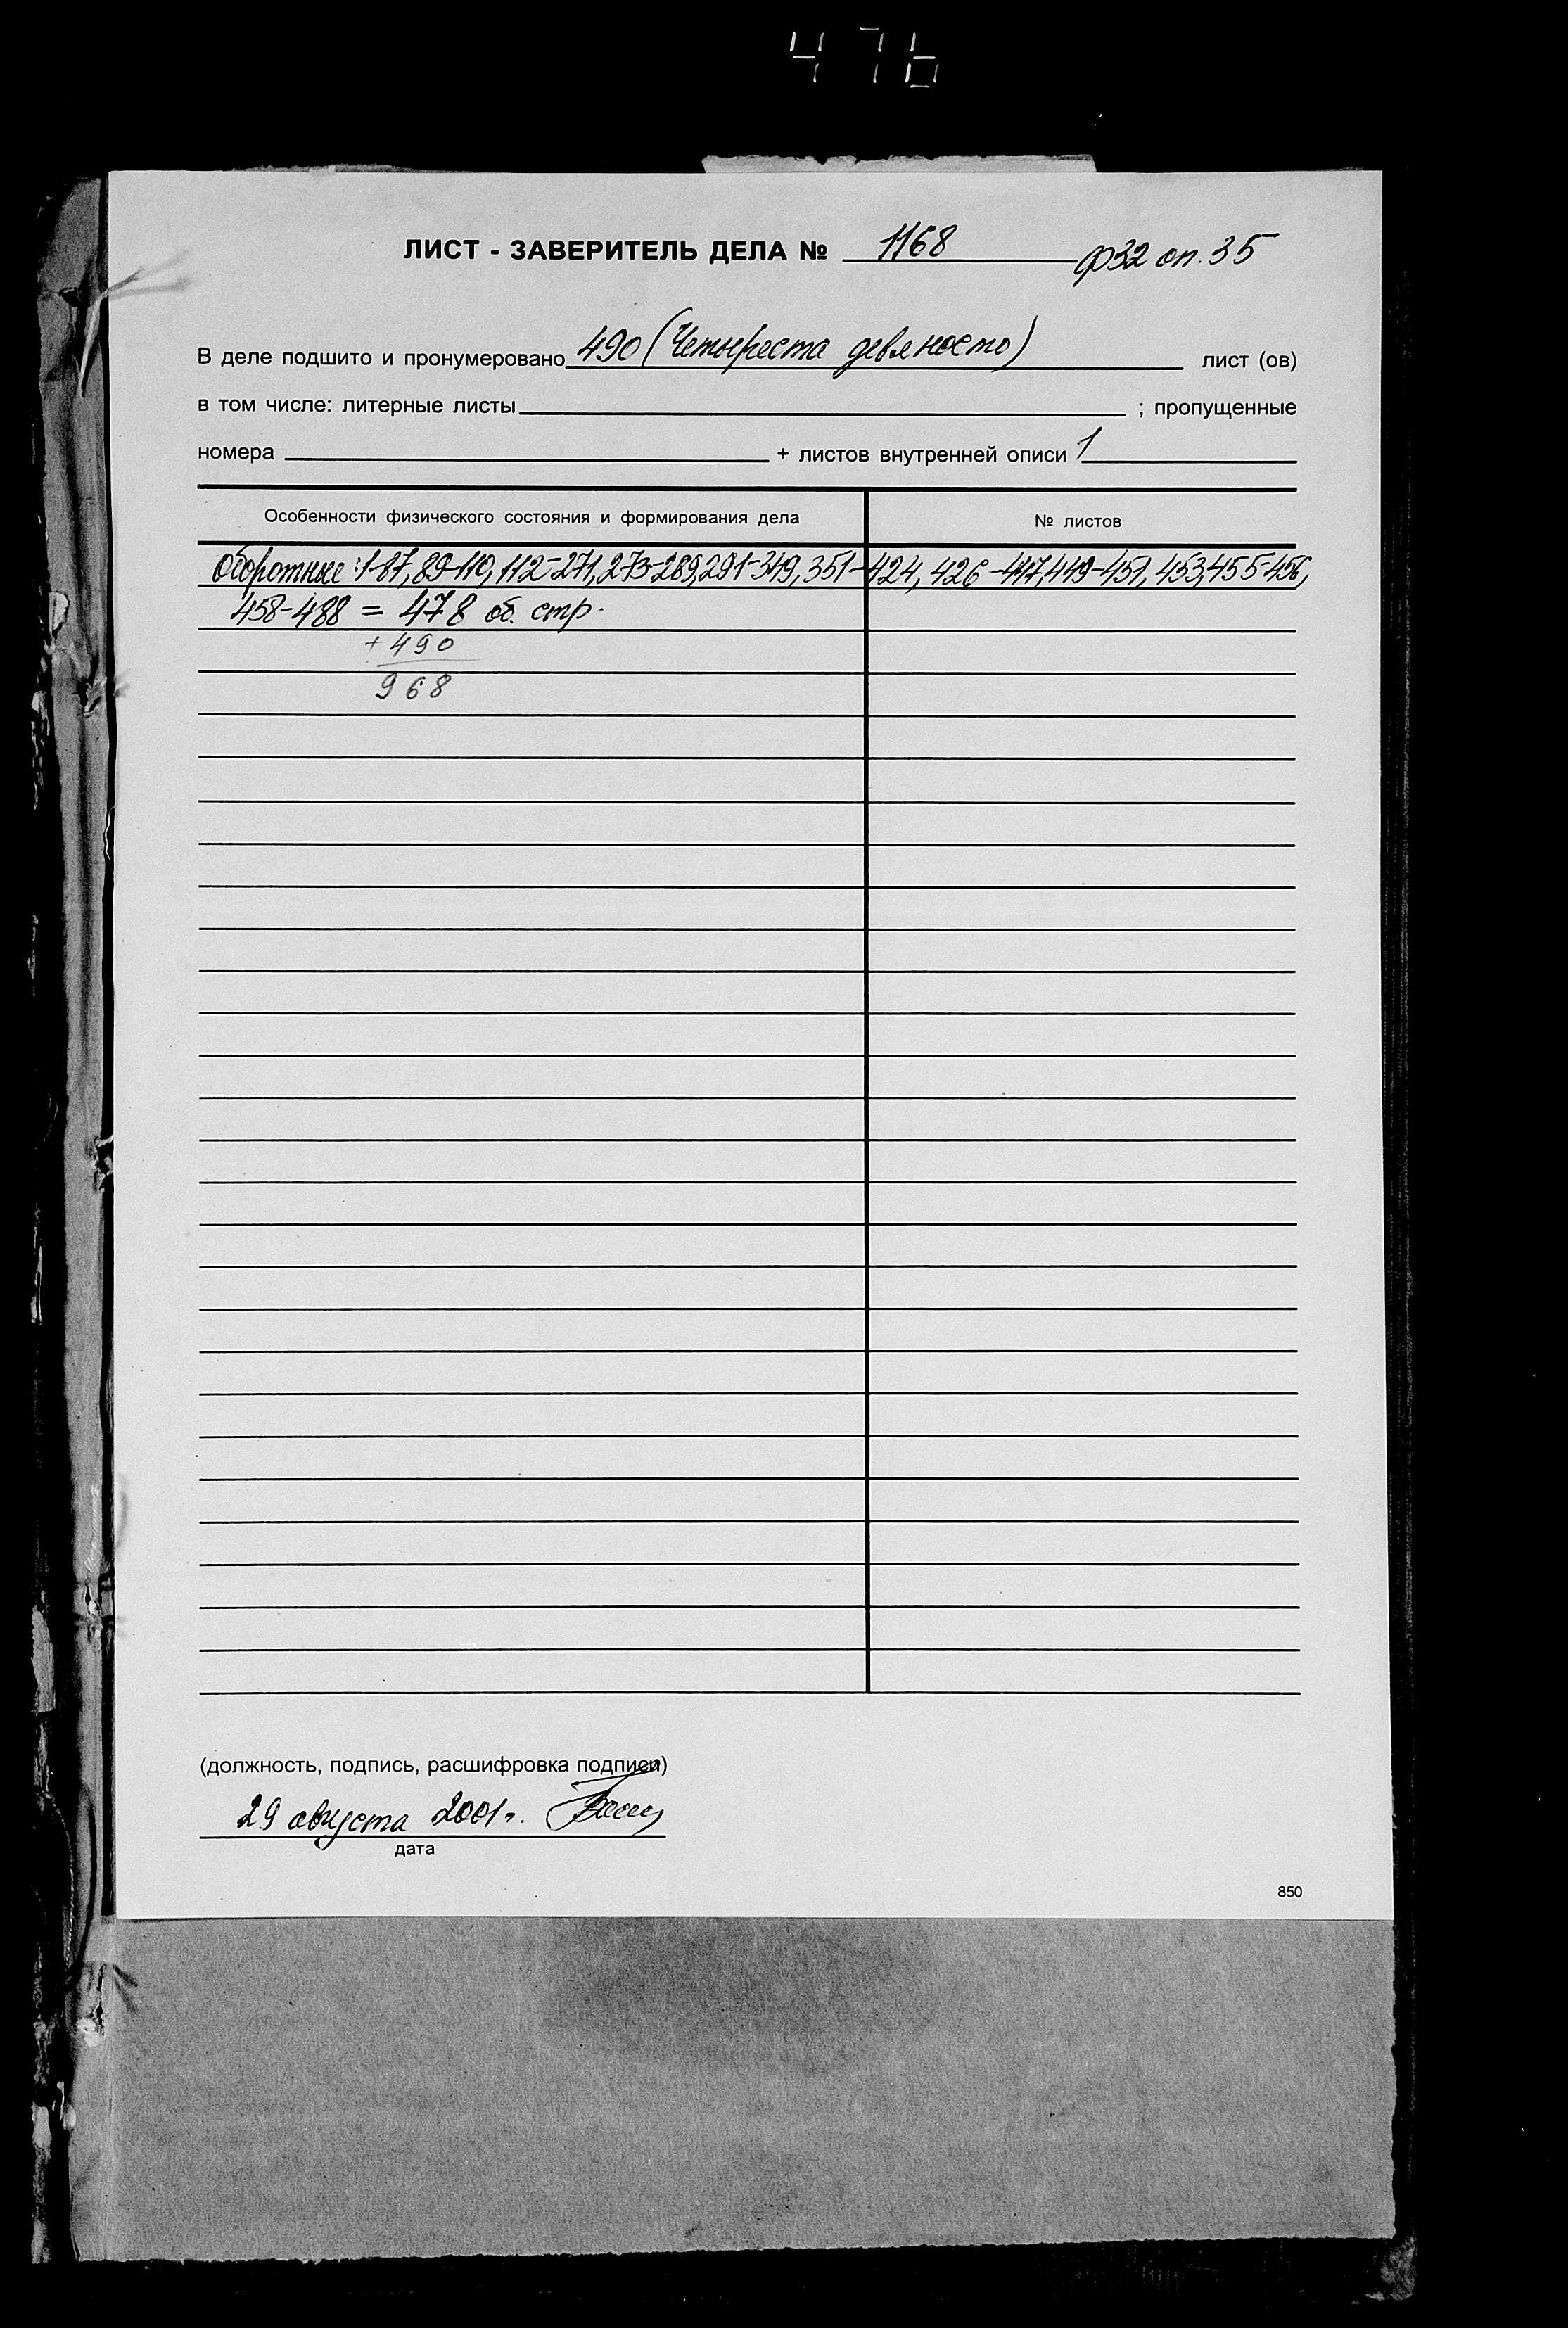 476
ЛИСТ - ЗАВЕРИТЕЛЬ ДЕЛА № 1168 ф32 оп. 35
В деле подшито и пронумеровано 490 (Четыреста девяносто) лист (ов)
в том числе: литерные листы ; пропущенные
номера + листов внутренней описи 1
Особенности физического состояния и формирования дела № листов
Оборотные: 1-87, 89-110, 112-271, 273-289, 291-349, 351-424, 426-447, 449-451, 453, 455-456,
458-488 = 478 об. стр.
+ 490
968
(должность, подпись, расшифровка подписи)
29 августа 2001 г.
дата
850